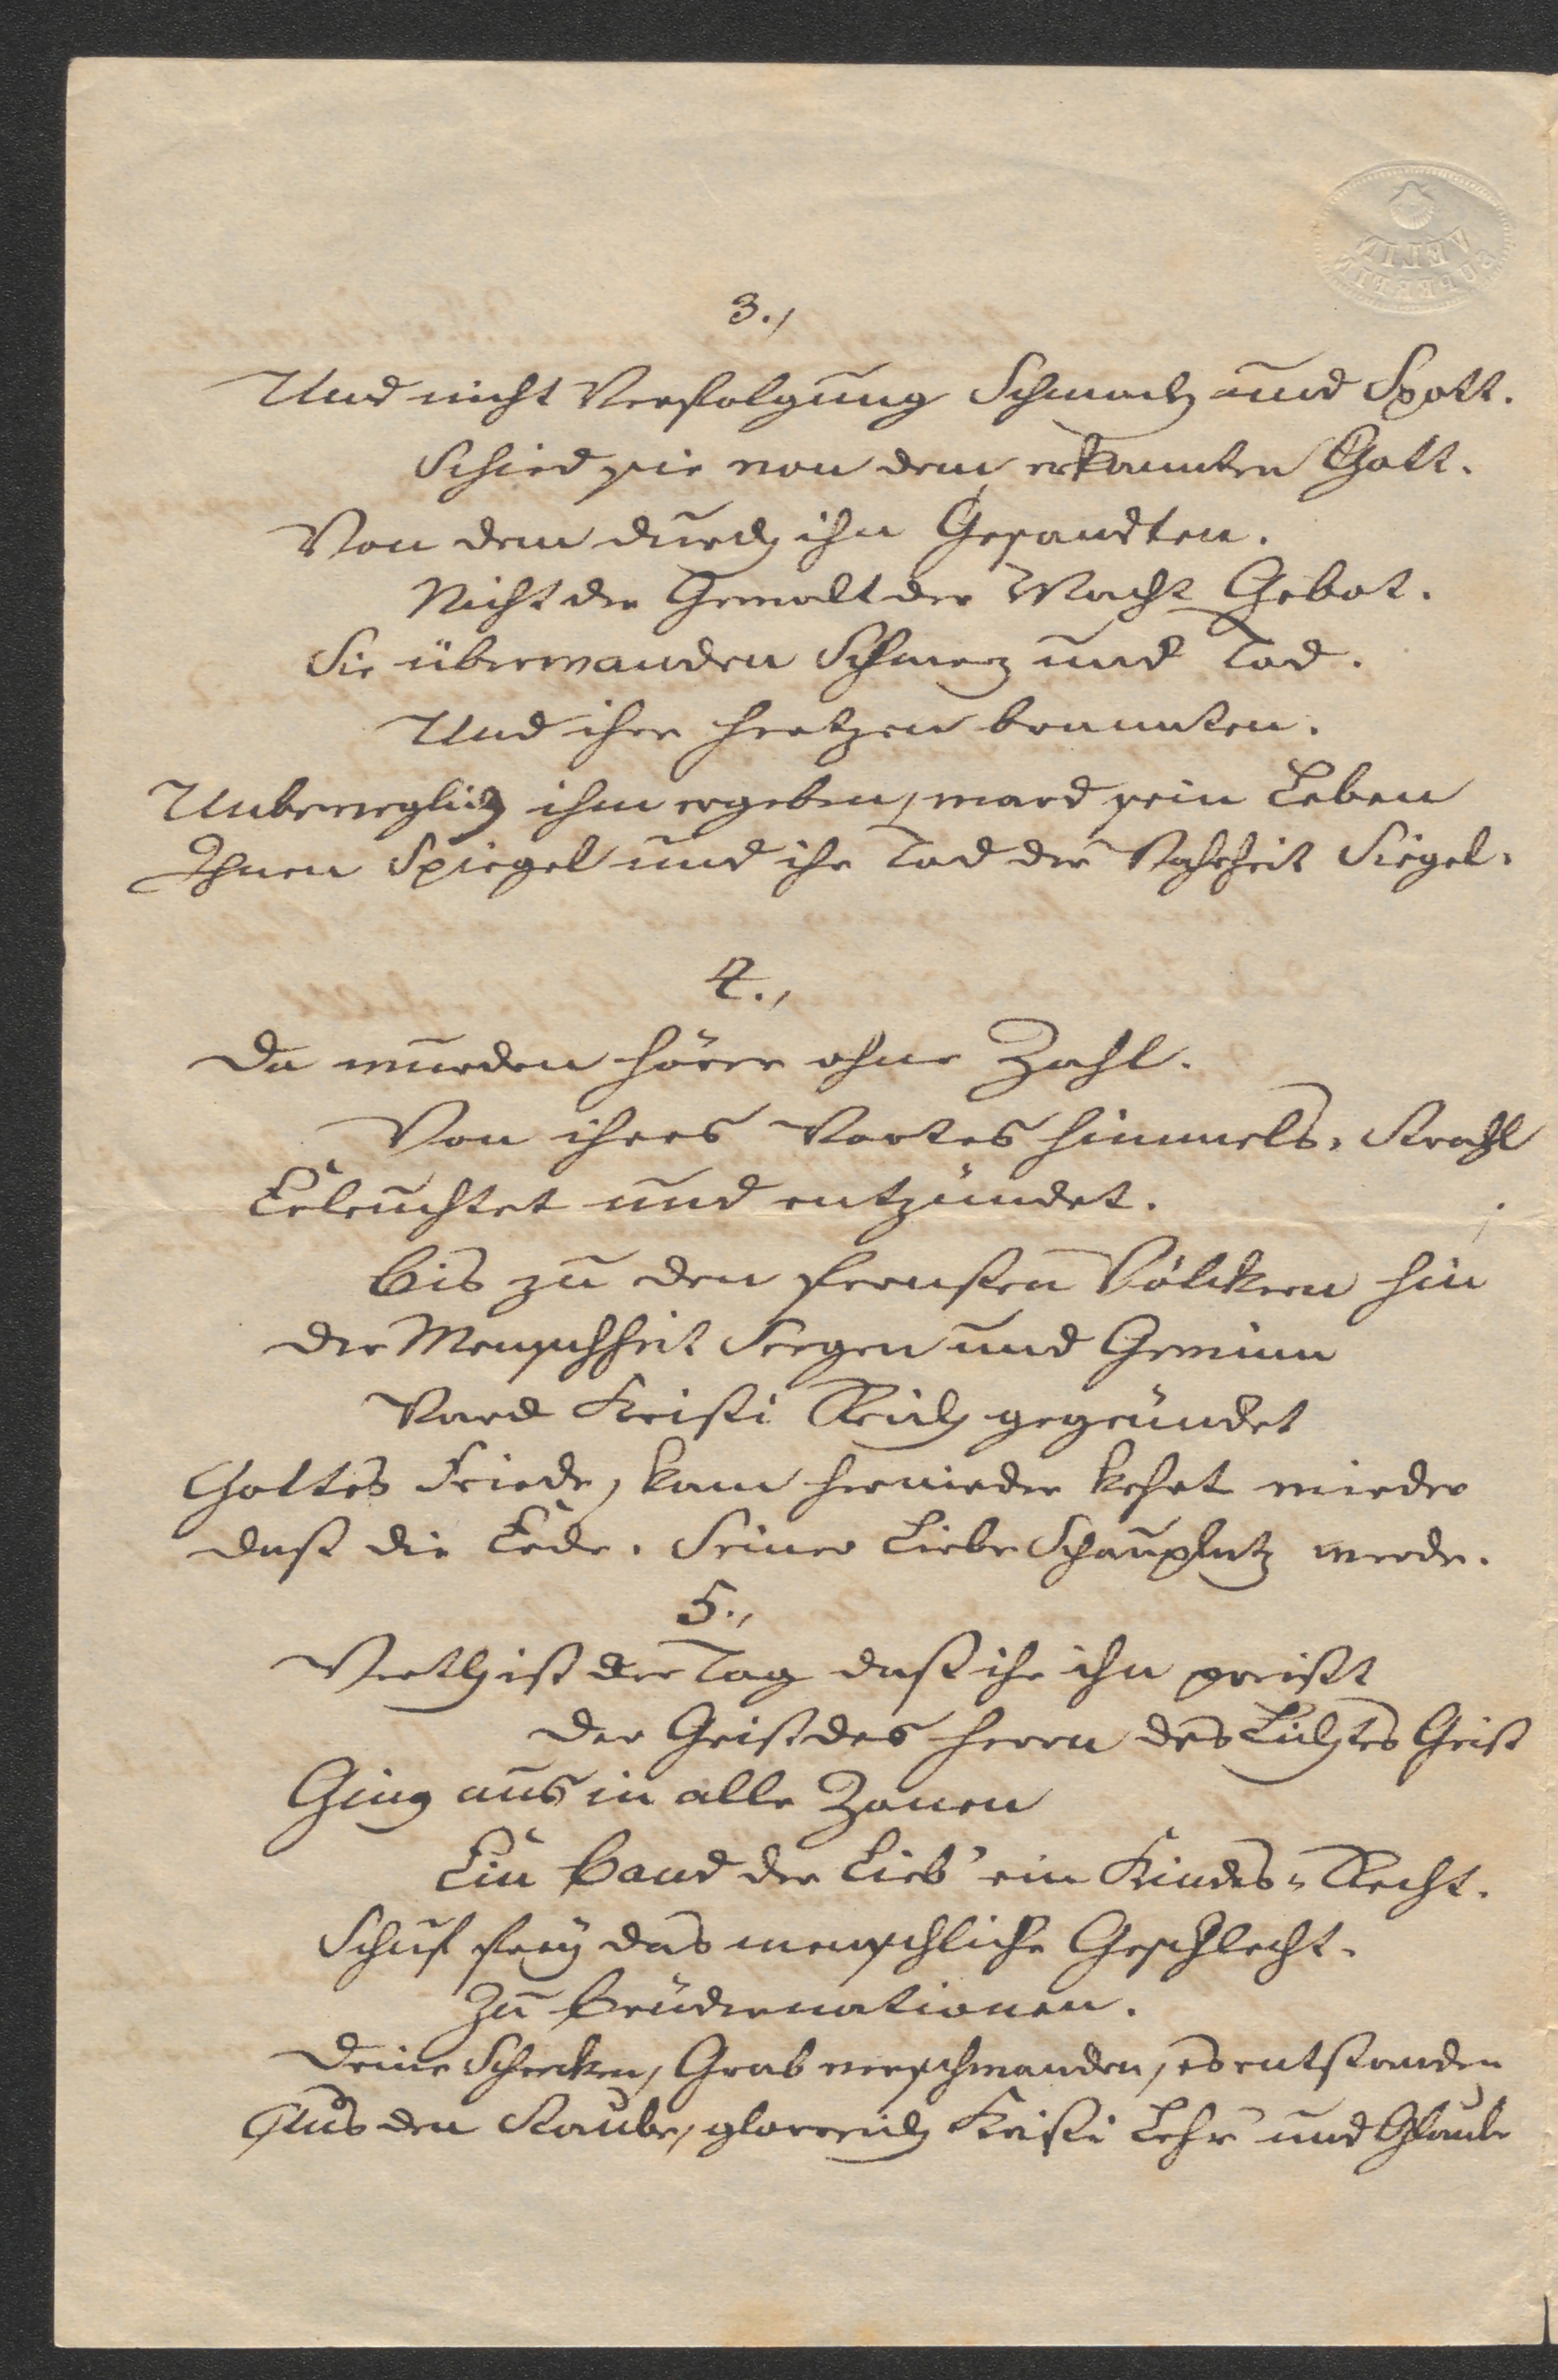 3.,
Und nicht Verfolgung Schmach und Spott.
Schied sie von dem erkannten Gott.
Von dem durch ihn Gesandten.
Nicht der Gewalt der Macht Gebot.
Sie überwanden Schmerz und Tod.
Und ihre Hertzen brannten.
Unbeweglich ihm ergeben, ward sein Leben
Ihnen Spiegel und ihr Tod der Wahrheit Siegel.
4.,
Da wurden Hörer ohne Zahl.
Von ihres Wortes Himmels-Strahl
Erleuchtet und entzündet.
Bis zu den fernsten Völckern hin
Der Menschheit Seegen und Gewinn
Ward Kristi Reich gegründet
Gottes Friede, kam hernieder kehrt wieder
Dass die Erde. Seiner Liebe Schauplatz werde.
5.,
Werth ist der Tag dass ihr ihn preisst
Der Geist des Herrn des Lichtes Geist
Ging aus in alle Zonen
Ein Band der Lieb' ein Kindes-Recht.
Schuf frey das menschliche Geschlecht.
Zu Brüdernationen.
Deine Schrecken, Grab verschwanden, es entstanden
Aus den Staube, glorreich Kristi Lehr und Glaube
VELIN
SUPERFIN